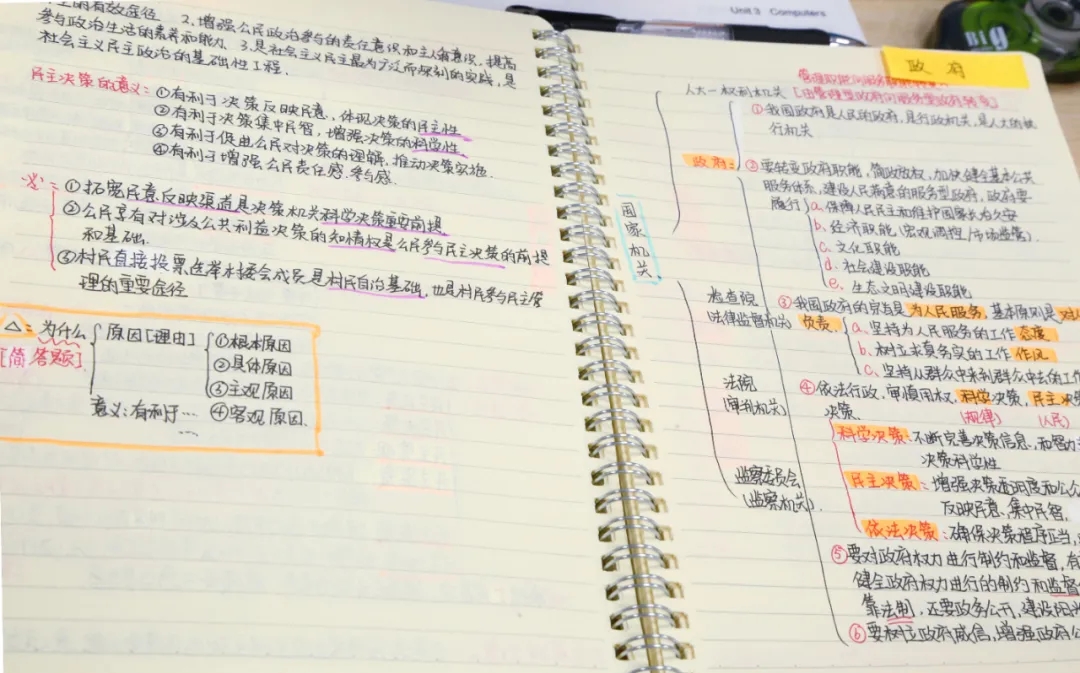 生的有效途径 2、增强公民政治参与的责任意识和主人翁意识,提高
参与政治生活的素养和能力 3.是社会主义民主最为广泛而深刻的实践,是
社会主义民主政治的基础性工程.
民主决策的意义:①有利于决策反映民意,体现决策的民主性
②有利于决策集中民智,增强决策的科学性
③有利于促进公民对决策的理解,推动决策实施.
④有利于增强公民责任感.参与感.
①拓宽民意反映渠道是决策机关科学决策重要前提
②公民享有对涉及公共利益决策的知情权是公民参与民主决策的前提
和基础.
③村民直接投票选举村委会成员是村民自治基础,也是村民参与民主管
理的重要途径
△:为什么
[简答题]
原因[理由]
①根本原因
②具体原因
③主观原因
④客观原因.
意义:有利于…
…
Unit 3 Computers
政府
人大—权利机关
[由管理型政府向服务型政府转变]
国家机关
政府:
①我国政府是人民的政府,是行政机关,是人大的执
行机关
②要转变政府职能,简政放权,加快健全基本公共
服务体系,建设人民满意的服务型政府,政府要
履行
a.保障人民民主和维护国家长治久安
b.经济职能(宏观调控/市场监管).
c.文化职能
d.社会建设职能
e.生态文明建设职能
检查院
法律监督机关
③我国政府的宗旨是为人民服务,基本原则是对人
负责.
a.坚持为人民服务的工作态度
b.树立求真务实的工作作风
c.坚持从群众中来到群众中去的工作
法院
(审判机关)
④依法行政,审慎用权,科学决策,民主决
决策.
(规律)
(人民)
科学决策:不断完善决策信息,和智力
决策科学性
监察委员会
(监察机关).
民主决策:增强决策透明度和公众
反映民意、集中民智.
依法决策:确保决策程序正当,
⑤要对政府权力进行制约和监督,有
健全政府权力进行的制约和监督
靠法制,还要政务公开,建设阳光
⑥要树立政府威信,增强政府公